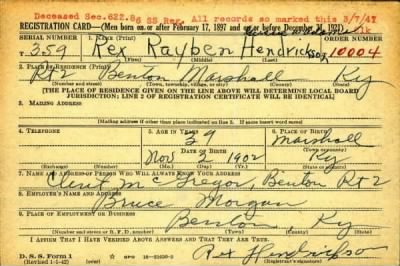 Deceased Sec. 622.86 SS Reg. All records so marked this 3/7/47
REGISTRATION CARD—(Men born on or after February 17, 1897 and on or before December 31, 1921)
SERIAL NUMBER 1. NAME (Print) ORDER NUMBER
T359 Rex Rayben Hendrickson 10004
(First) (Middle) (Last)
2. PLACE OF RESIDENCE (Print)
Rt 2 Benton Marshall Ky
(Number and street) (Town, township, village, or city) (County) (State)
[THE PLACE OF RESIDENCE GIVEN ON THE LINE ABOVE WILL DETERMINE LOCAL BOARD
JURISDICTION; LINE 2 OF REGISTRATION CERTIFICATE WILL BE IDENTICAL]
3. MAILING ADDRESS
[Mailing address if other than place indicated on line 2. If same insert word same]
4. TELEPHONE 5. AGE IN YEARS 6. PLACE OF BIRTH
39 Marshall
DATE OF BIRTH (Town or county)
Nov 2 1902 Ky
(Exchange) (Number) (Mo.) (Day) (Yr.) (State or country)
7. NAME AND ADDRESS OF PERSON WHO WILL ALWAYS KNOW YOUR ADDRESS
Clint McGregor, Benton Rt 2
8. EMPLOYER'S NAME AND ADDRESS
Bruce Morgan
9. PLACE OF EMPLOYMENT OR BUSINESS
Benton, Ky
(Number and street or R. F. D. number) (Town) (County) (State)
I AFFIRM THAT I HAVE VERIFIED ABOVE ANSWERS AND THAT THEY ARE TRUE.
D. S. S. Form 1
(Revised 1-1-42) (over)
Rex Hendrickson